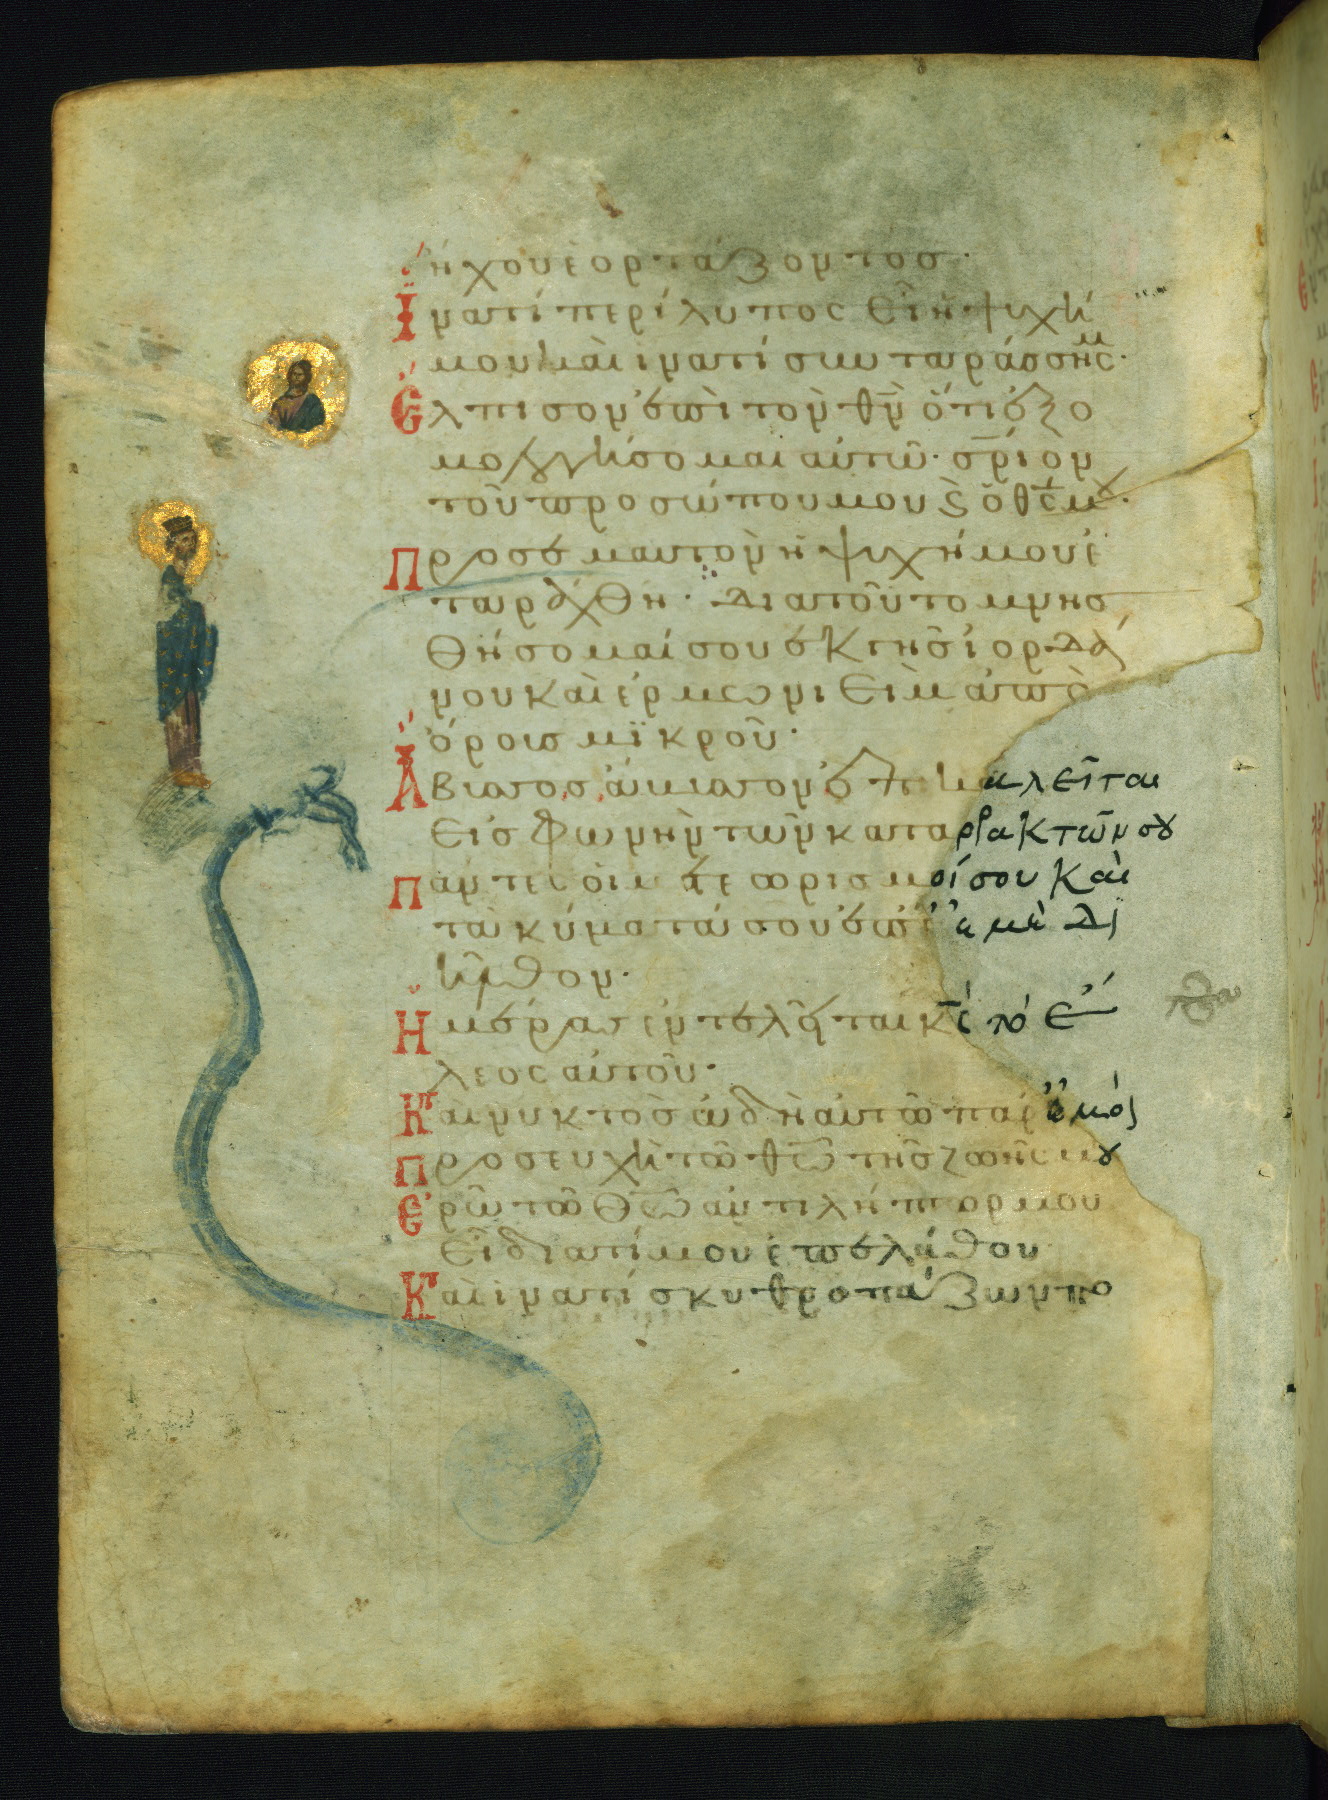 ἤχου ἑορτάζοντοσ·
Ἵνατί περίλυπος εἶ ἡ ψυχή
μου καὶ ἱνατί συνταράσσησ μ·
Ἔλπισον ἐπὶ τὸν θν ὅτι ἐξο
μολογήσομαι αὐτῶ· σρίον
τοῦ προσώπου μου ϛ ὁ θς μ·
Πρὸσ ἐμαυτὸν ἡ ψυχή μου ἐ
ταράχθη· Διατοῦτο μνησ
θήσομαί σου ἐκ γῆσ ἰορδά
νου καὶ ἑρμωνιεὶμ ἀπὸ
ὄρουσ μικροῦ·
Ἄβυσσοσ ἄβυσσον ἐπικαλεῖται
εἰσ φωνὴν τῶν καταρακτῶν σου
Πάντες οἱ μετεωρισμοί σου καὶ
τὰ κύματά σου ἐπ' ἐμὲ δι
ῆλθον·
Ἡμέρασ ἐντελεῖται κς τὸ ἔ
λεος αὐτοῦ·
Καὶ νυκτὸσ ὠδὴ αὐτῶ παρ' ἐμοί
Προσευχὴ τῶ θῶ τῆσ ζωῆς μου
Ἐρῶ τῶ θῶ ἀντιλήπτορ μου
εἶ διατί μου ἐπελάθου
Καὶ ἱνατί σκυθροπάζων πο